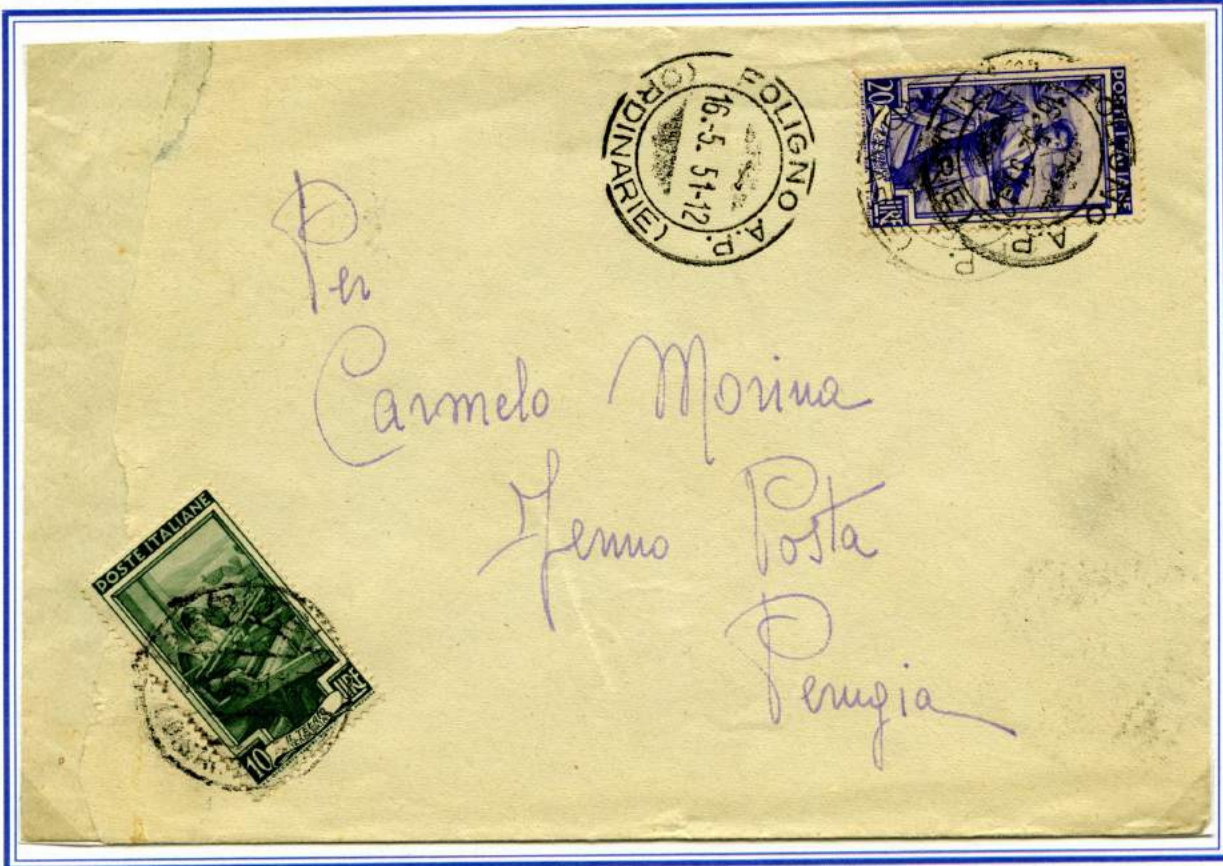 FOLIGNO A.P.
(ORDINARIE)
16.-5. 51-12
POSTE ITALIANE
20 LIRE
Per
Carmelo Morina
Fermo Posta
Perugia
POSTE ITALIANE
10 LIRE
IL TELAIO